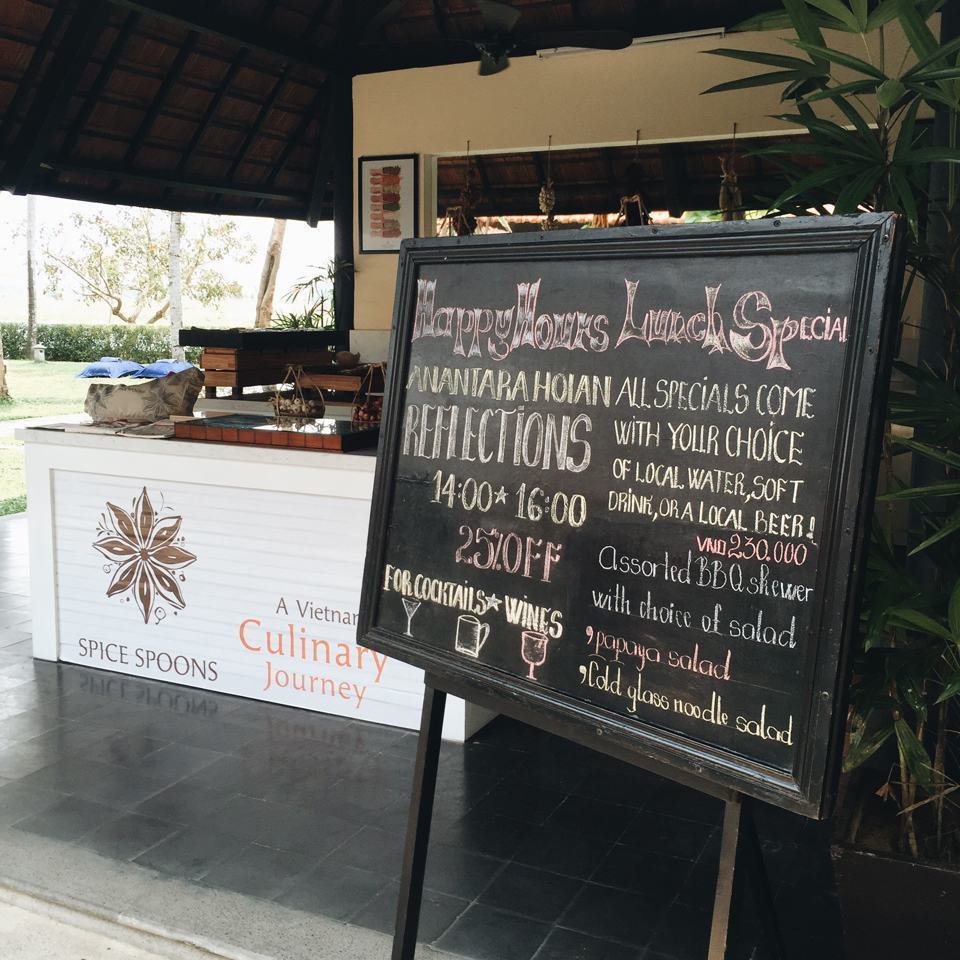 Happy Hours Lunch Special
ANANTARA HOIAN
REFLECTIONS
14:00★16:00
25% OFF
FOR COCKTAILS★WINES
ALL SPECIALS COME
WITH YOUR CHOICE
OF LOCAL WATER, SOFT
DRINK, OR A LOCAL BEER!
VND 230.000
Assorted BBQ skewer
with choice of salad
, papaya salad
, Cold glass noodle salad
SPICE SPOONS
A Vietnam
Culinary
Journey